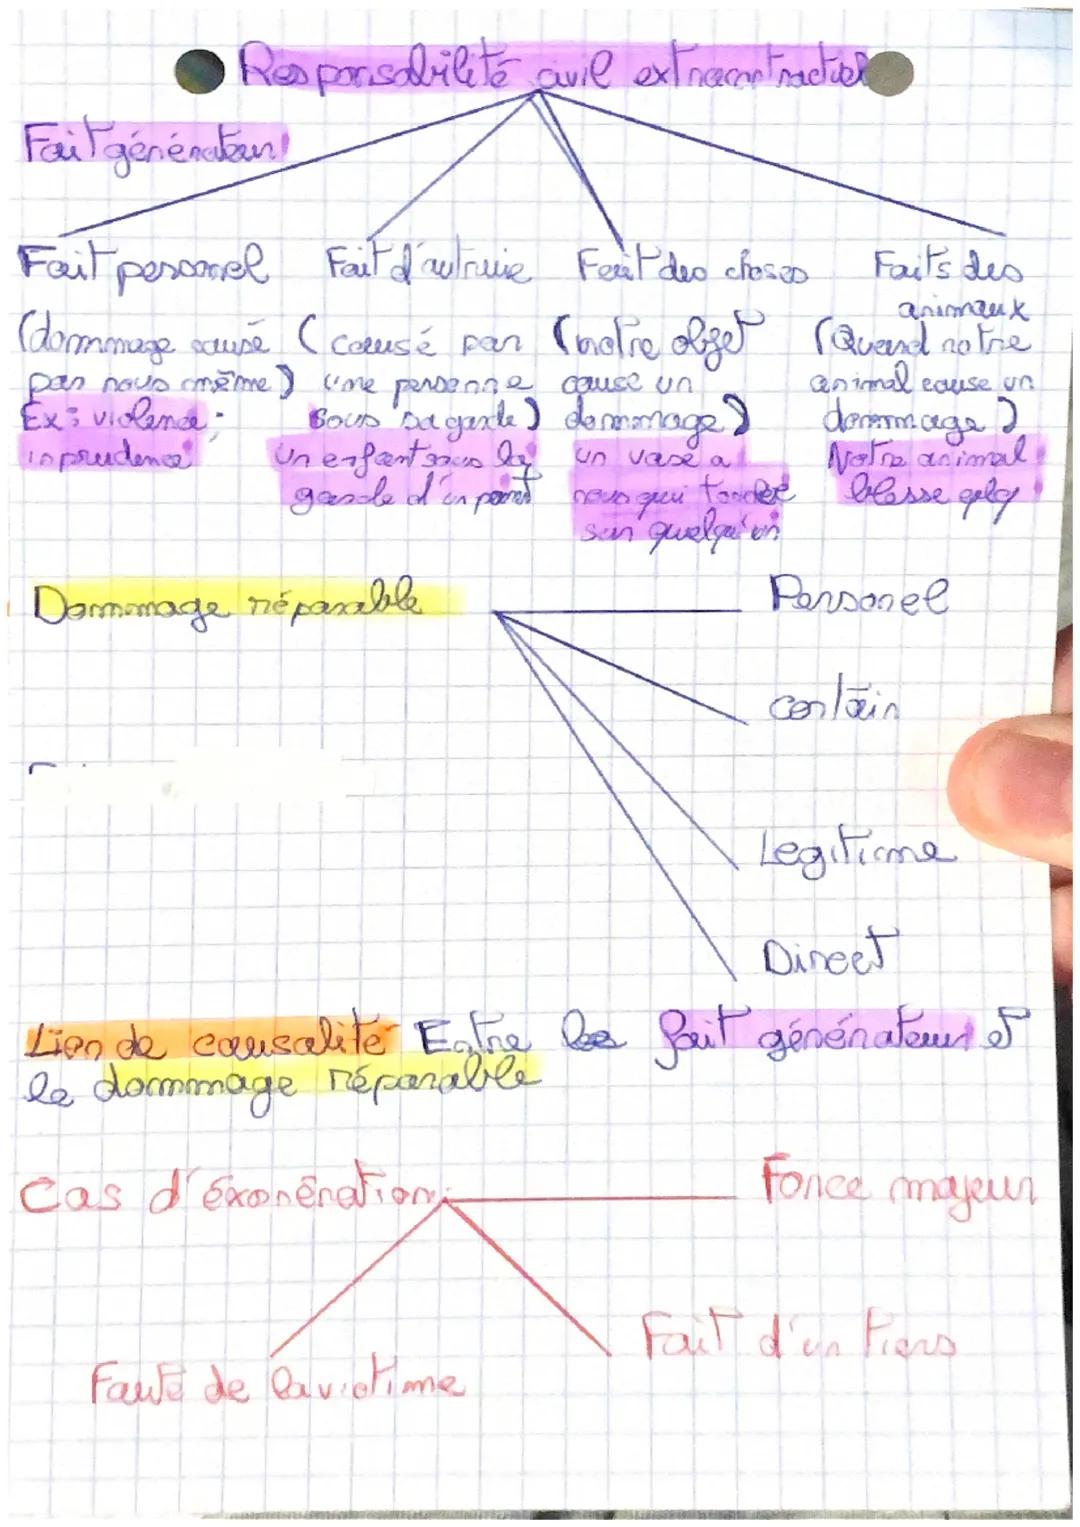 Responsabilité civil extracontractuel
Fait générateur
Fait personel Fait d'autruie Fait des choses Faits des
animaux
(dommage causé (causé par (notre objet (Quand notre
par nous même) une personne cause un animal cause un
Ex: violence; sous sa garde) dommage) dommage)
inprudence un enfant sous la un vase a Notre animal
garde d'un parent nous qui tombe blesse qelq
sur quelqu'un
Dommage réparable Personel
certain
Legitime
Direct
Lien de causalité Entre le fait générateur et
le dommage réparable
Cas d'éxonération: Force majeur
Fait d'un tiers
Faute de la victime